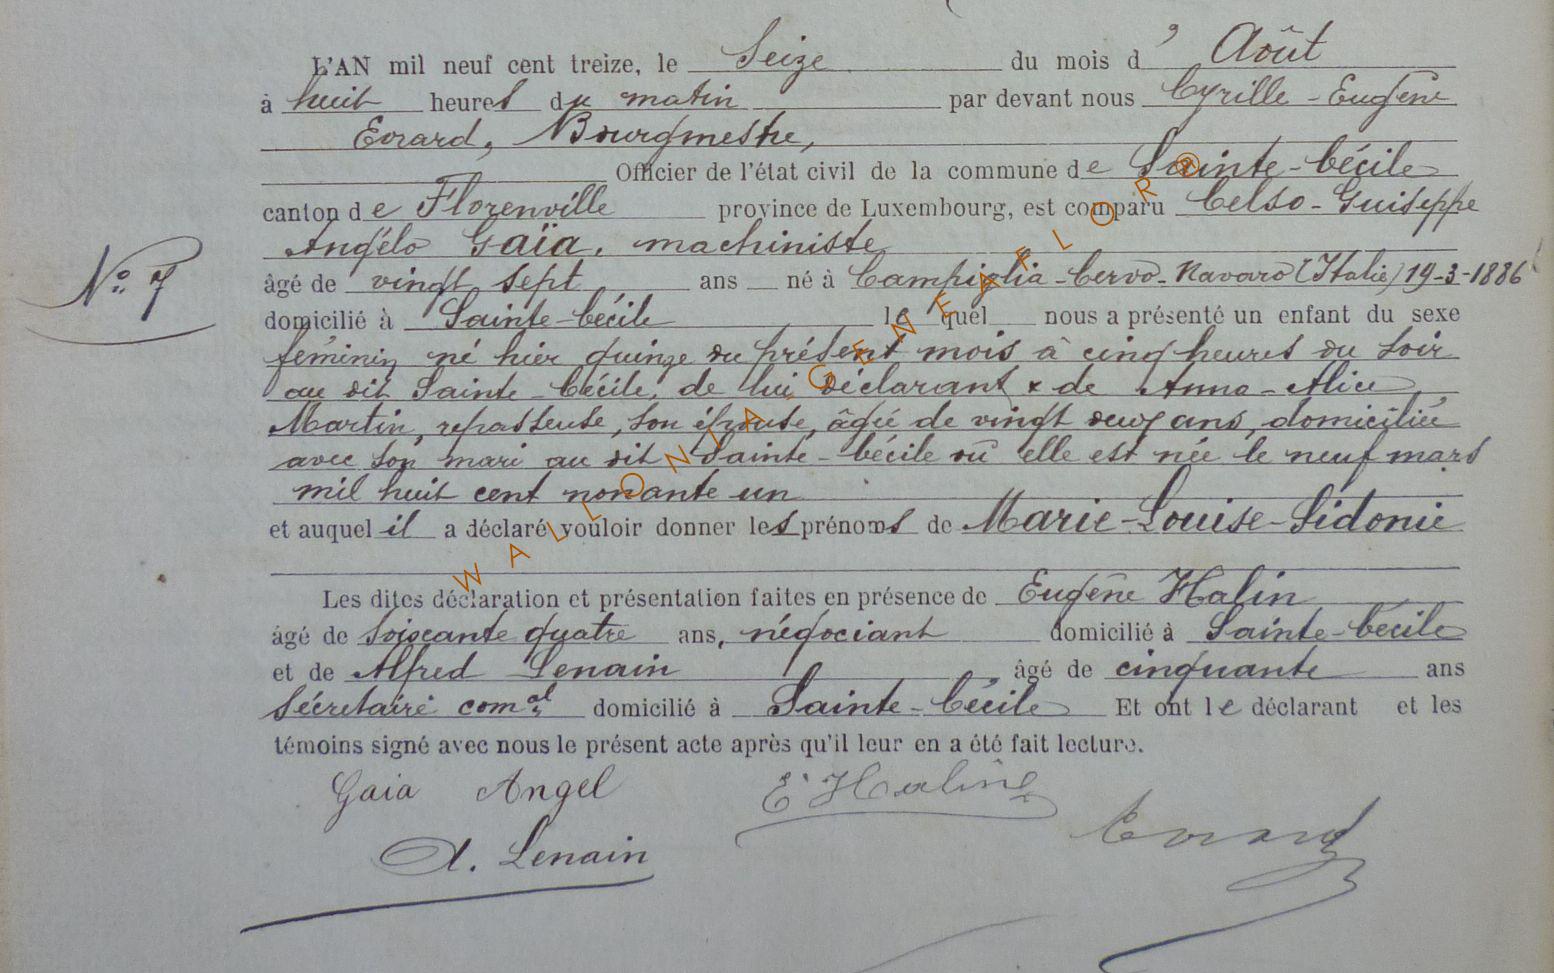 L'AN mil neuf cent treize, le Seize du mois d' Août
à huit heures du matin par devant nous Cyrille-Eugène
Evrard, Bourgmestre,
Officier de l'état civil de la commune de Sainte-Cécile
canton de Florenville province de Luxembourg, est comparu Celso-Guiseppe
Angélo Gaïa, machiniste
âgé de vingt sept ans né à Campiglia-Cervo-Navaro (Italie) 19-3-1886
N° 7
domicilié à Sainte-Cécile lequel nous a présenté un enfant du sexe
féminin né hier quinze du présent mois à cinq heures du soir
au dit Sainte-Cécile, de lui déclarant & de Anna-Alice
Martin, repasseuse, son épouse, âgée de vingt deux ans, domiciliée
avec son mari au dit Sainte-Cécile où elle est née le neuf mars
mil huit cent nonante un
et auquel il a déclaré vouloir donner les prénoms de Marie-Louise-Sidonie
Les dites déclaration et présentation faites en présence de Eugène Halin
âgé de soixante quatre ans, négociant domicilié à Sainte-Cécile
et de Alfred Lenain âgé de cinquante ans
Sécretaire com.al domicilié à Sainte-Cécile Et ont le déclarant et les
témoins signé avec nous le présent acte après qu'il leur en a été fait lecture.
Gaia Angel E Haline
A. Lenain Evrard
WALLONIA-GENEAFLOR@